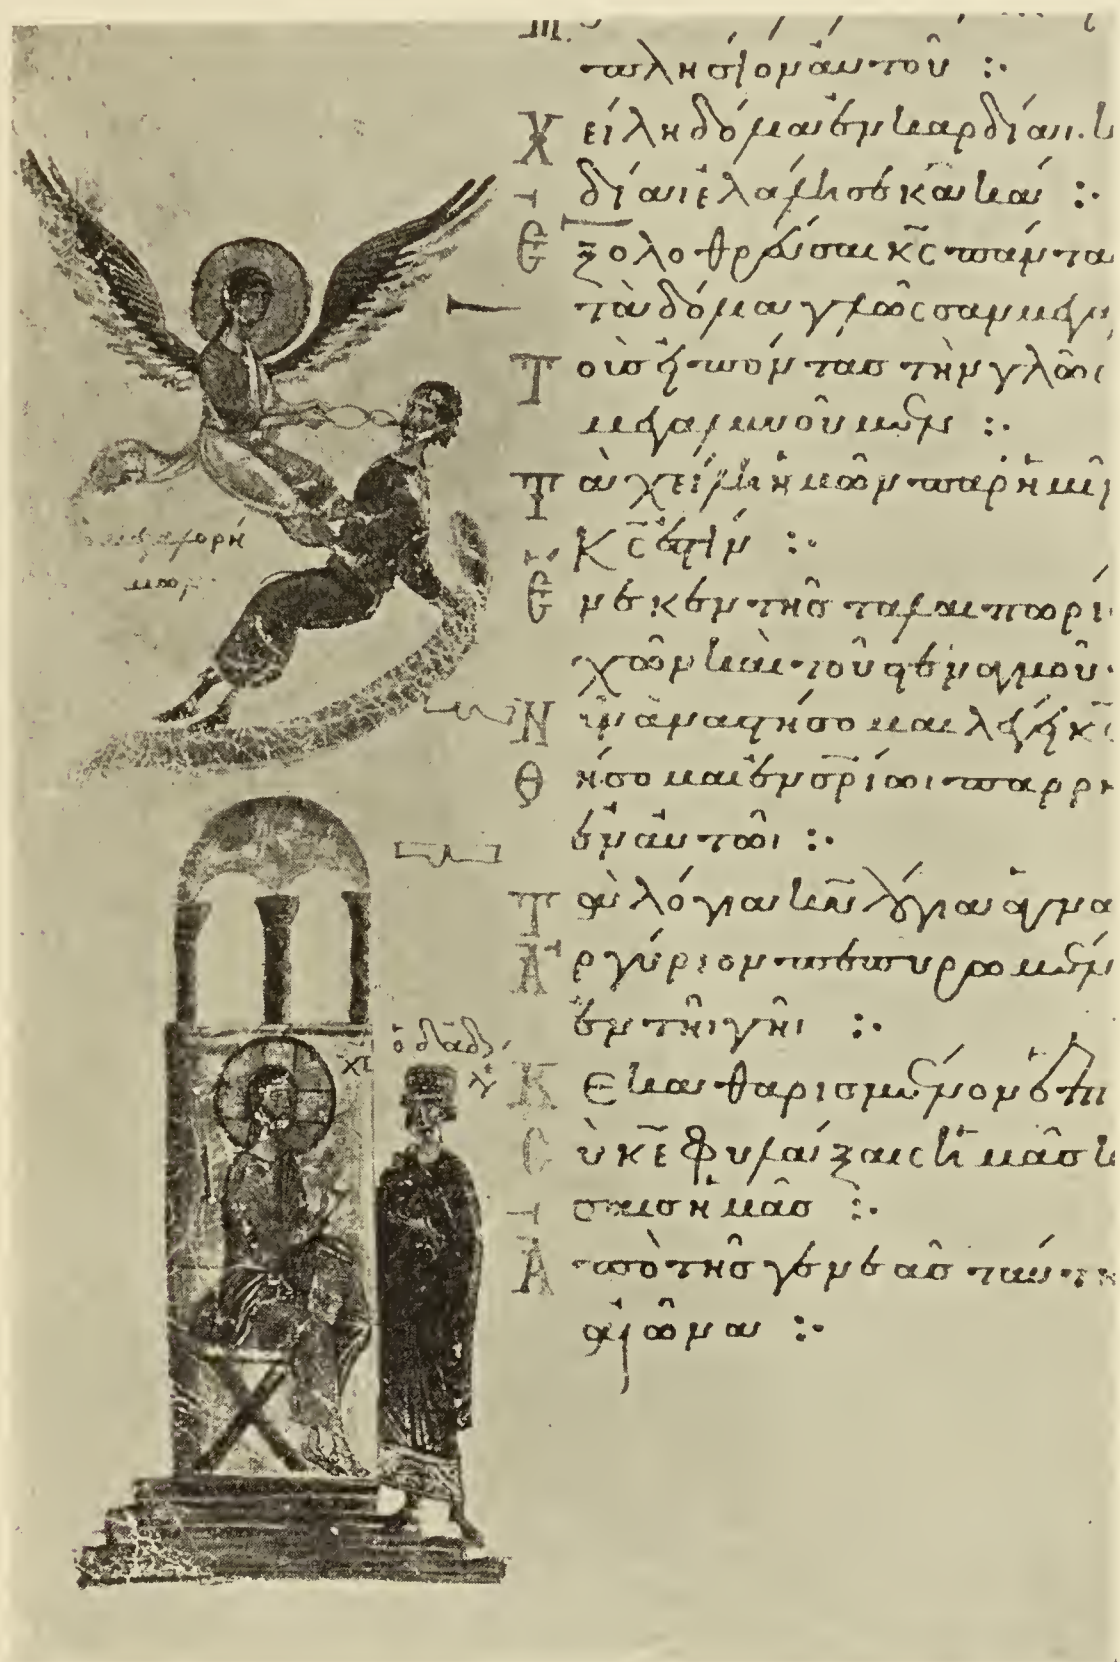 πλησίον αὐτοῦ :·
Χείλη δόλια ἐν καρδίαι. κ
δίαι ἐλάλησε κακά :·
Ἐξολοθρεύσαι κ̅ς̅ πάντα
τὰ δόλια γλῶσσαν με
Τοὺς εἰπόντας τὴν γλῶσ
μεγαλυνοῦμεν :·
Τὰ χείλη ἡμῶν παρ' ἡμῖ
κ̅ς̅ ἐστίν :·
Ἕνεκεν τῆς ταλαιπωρί
χῶν καὶ τοῦ στεναγμοῦ
Νῦν ἀναστήσομαι λέγει κ̅ς̅
Θήσομαι ἐν σ̅ρ̅ίωι παρρη
ἐν αὐτῶι :·
Τὰ λόγια κ̅υ̅ λόγια ἁγνὰ
Ἀργύριον πεπυρωμέν
ἐν τῆι γῆι :·
Κεκαθαρισμένον ἑπτ
Σὺ κ̅ε̅ φυλάξαις ἡμᾶς κ
σαις ἡμᾶς :·
Ἀπὸ τῆς γενεᾶς ταύτη
αἰῶνα :·
ὁ δ̅α̅δ̅